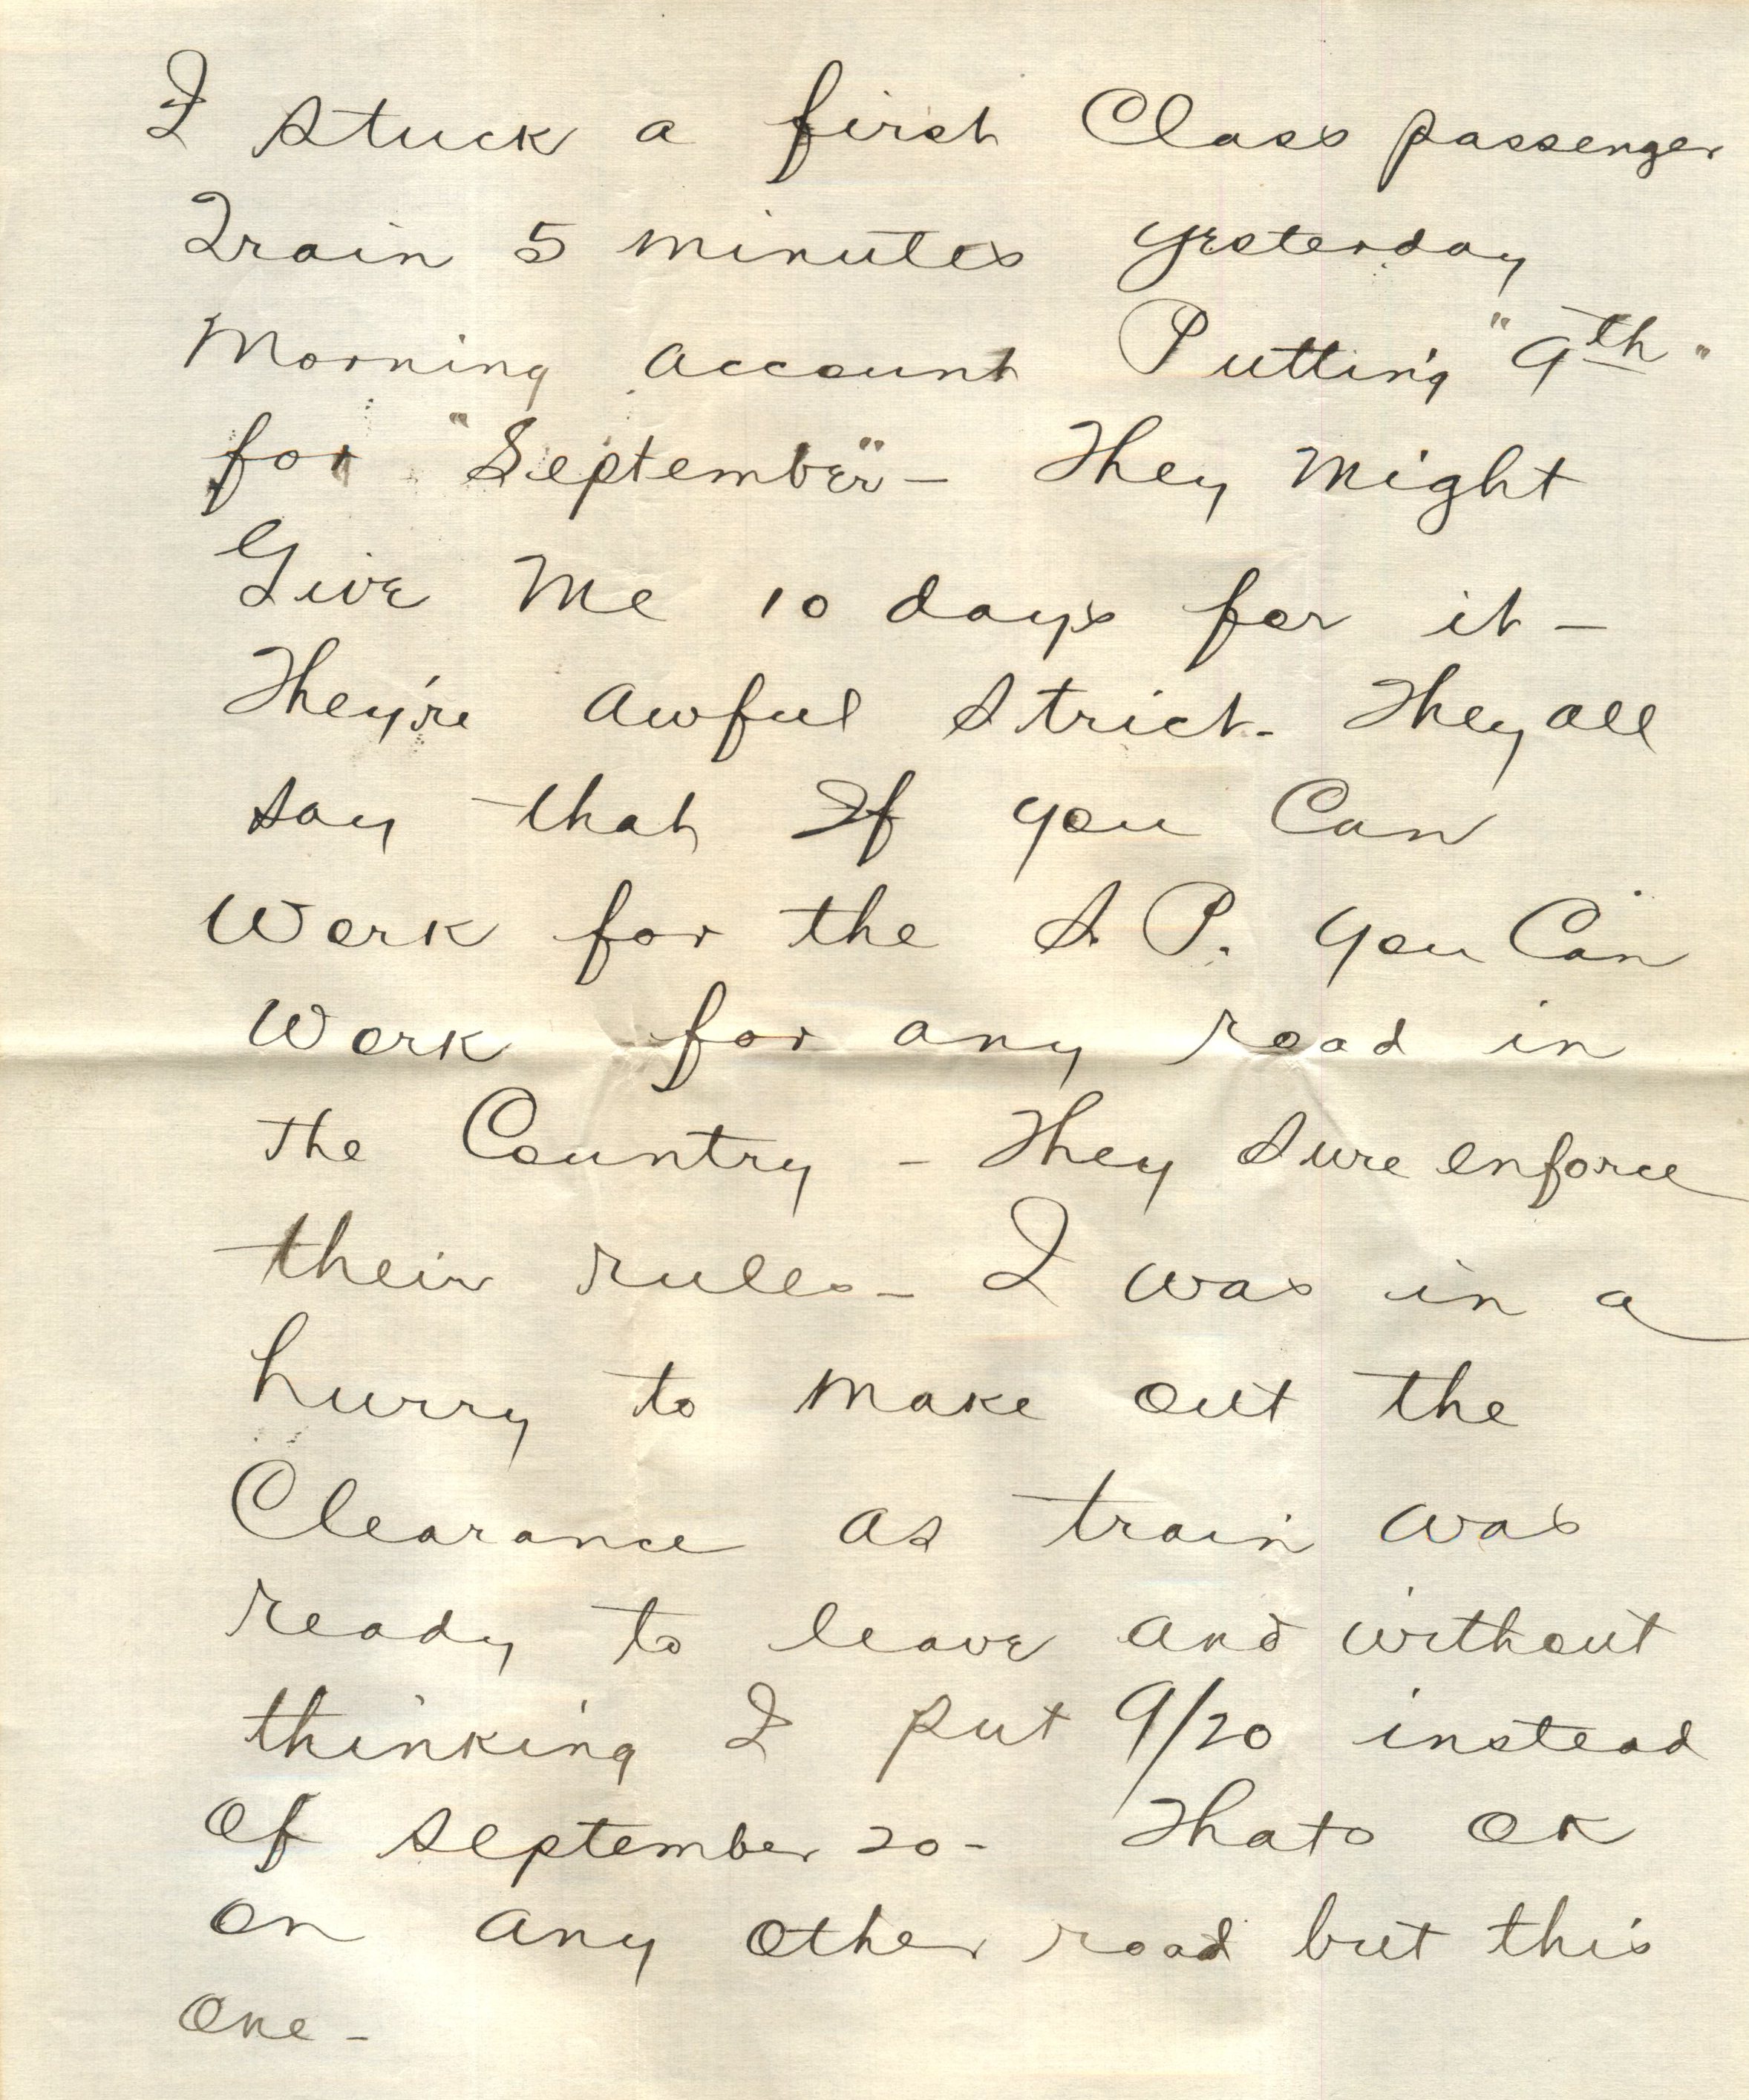 I stuck a first Class passenger
Train 5 minutes yesterday
Morning account Putting "9th"
for "September" - They might
Give Me 10 days for it -
They're awful strict - They all
say that If you Can
Work for the S.P. you Can
Work for any road in
The Country - They sure enforce
their rules - I was in a
hurry to make out the
Clearance as train was
ready to leave and without
thinking I put 9/20 instead
of September 20 - Thats OK
on any other road but this
one -